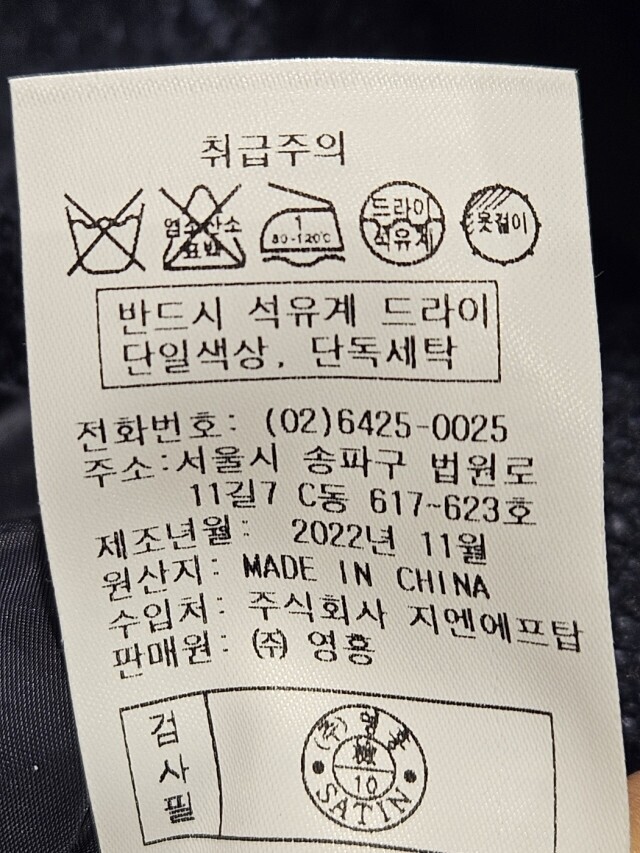 취급주의
염소산소
표백
1
80-120℃
드라이
석유계
옷걸이
반드시 석유계 드라이
단일색상, 단독세탁
전화번호: (02)6425-0025
주소:서울시 송파구 법원로
11길7 C동 617-623호
제조년월: 2022년 11월
원산지: MADE IN CHINA
수입처: 주식회사 지엔에프탑
판매원: ㈜ 영흥
검사필
㈜영흥
10
SATIN